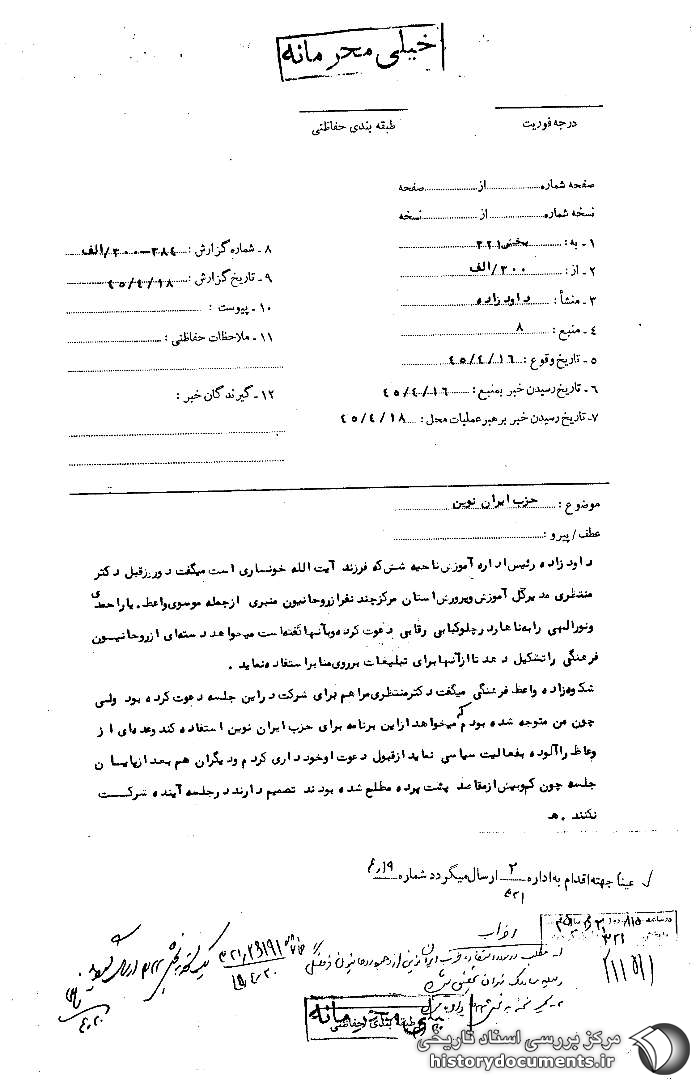 خیلی محرمانه
درجه فوریت
طبقه بندی حفاظتی
صفحه شماره ........ از ........ صفحه
نسخه شماره ........ از ........ نسخه
۱ـ به : بخش ۳۲۱
۲ـ از : ۳۰۰/الف
۳ـ منشأ : داودزاده
۴ـ منبع : ۸
۵ـ تاریخ وقوع : ۴۵/۴/۱۶
۶ـ تاریخ رسیدن خبر بمنبع : ۴۵/۴/۱۶
۷ـ تاریخ رسیدن خبر برهبر عملیات محل : ۴۵/۴/۱۸
۸ـ شماره گزارش : ۳۸۴ـ۳۰۰/الف
۹ـ تاریخ گزارش : ۴۵/۴/۱۸
۱۰ـ پیوست :
۱۱ـ ملاحظات حفاظتی :
۱۲ـ گیرندگان خبر :
موضوع : حزب ایران نوین
عطف/پیرو :
داودزاده رئیس اداره آموزش ناحیه شش که فرزند آیت الله خونساری است میگفت دو روز قبل دکتر
منتظری مدیرکل آموزش وپرورش استان مرکز چند نفر از روحانیون منبری از جمله موسوی واعظ ـ یاراحمدی
ونورالهی را به ناهار در چلوکبابی رقابی دعوت کرده وبآنها گفته است میخواهد دسته‌ای از روحانیسون
فرهنگی را تشکیل دهد تا از آنها برای تبلیغات بر روی منابر استفاده نماید .
شکوه‌زاده واعظ فرهنگی میگفت دکتر منتظری مرا هم برای شرکت در این جلسه دعوت کرده بود ولی
چون من متوجه شده بودم که میخواهد از این برنامه برای حزب ایران نوین استفاده کند وعده‌ای از
وعاظ را آلوده بفعالیت سیاسی نماید از قبول دعوت او خودداری کردم ودیگران هم بعد از پایسان
جلسه چون کم‌وبیش از مقاصد پشت پرده مطلع شده بودند تصمیم دارند در جلسه آینده شرکت
نکنند . هـ
عیناً جهته اقدام به اداره ۲ ارسال میگردد شماره ۴٫۱۹
۵۲۱
۳۲۱
طبقه بندی حفاظتی
مرکز بررسی اسناد تاریخی
historydocuments.ir